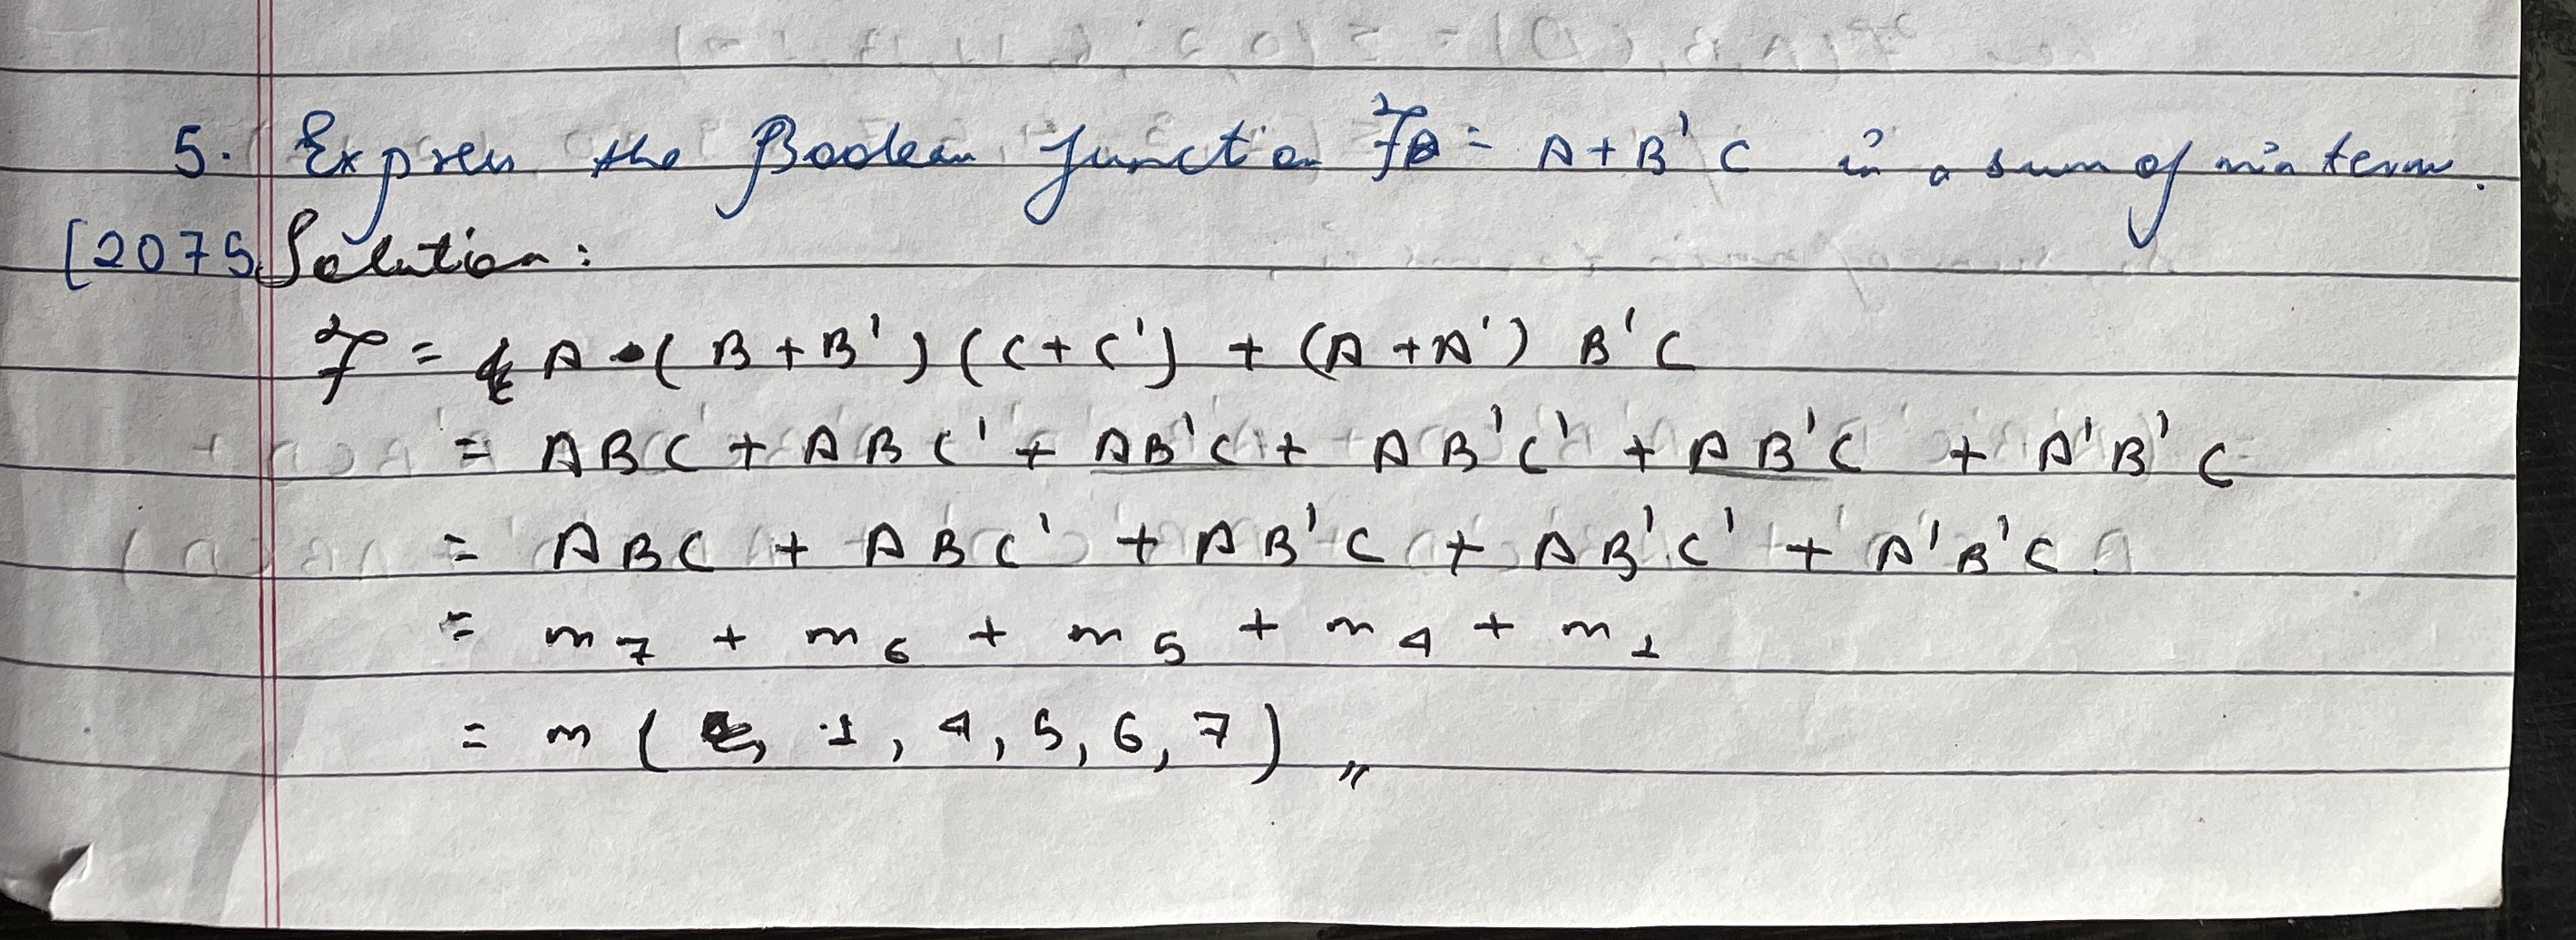 5. Express the Boolean function F = A + B'C in a sum of min term.
[2075 Solution:
F = A (B + B') (C + C') + (A + A') B'C
= ABC + ABC' + AB'C + AB'C' + AB'C + A'B'C
= ABC + ABC' + AB'C + AB'C' + A'B'C.
= m7 + m6 + m5 + m4 + m1
= m ( 1, 4, 5, 6, 7) "